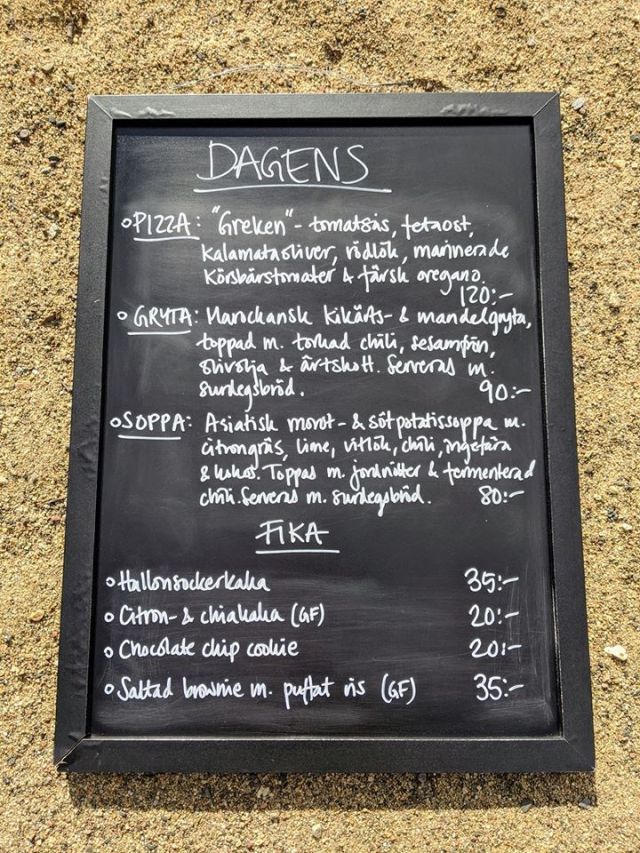 DAGENS
○ PIZZA: "Greken" - tomatsås, fetaost,
kalamataoliver, rödlök, marinerade
körsbärstomater & färsk oregano.
120:-
○ GRYTA: Marockansk kikärts- & mandelgryta,
toppad m. torkad chili, sesamfrön,
olivolja & ärtskott. Serveras m.
surdegsbröd. 90:-
○ SOPPA: Asiatisk morot- & sötpotatissoppa m.
citrongräs, lime, vitlök, chili, ingefära
& kokos. Toppas m. jordnötter & fermenterad
chili. Serveras m. surdegsbröd. 80:-
FIKA
○ Hallonsockerkaka 35:-
○ Citron- & chiakaka (GF) 20:-
○ Chocolate chip cookie 20:-
○ Saltad brownie m. puffat ris (GF) 35:-